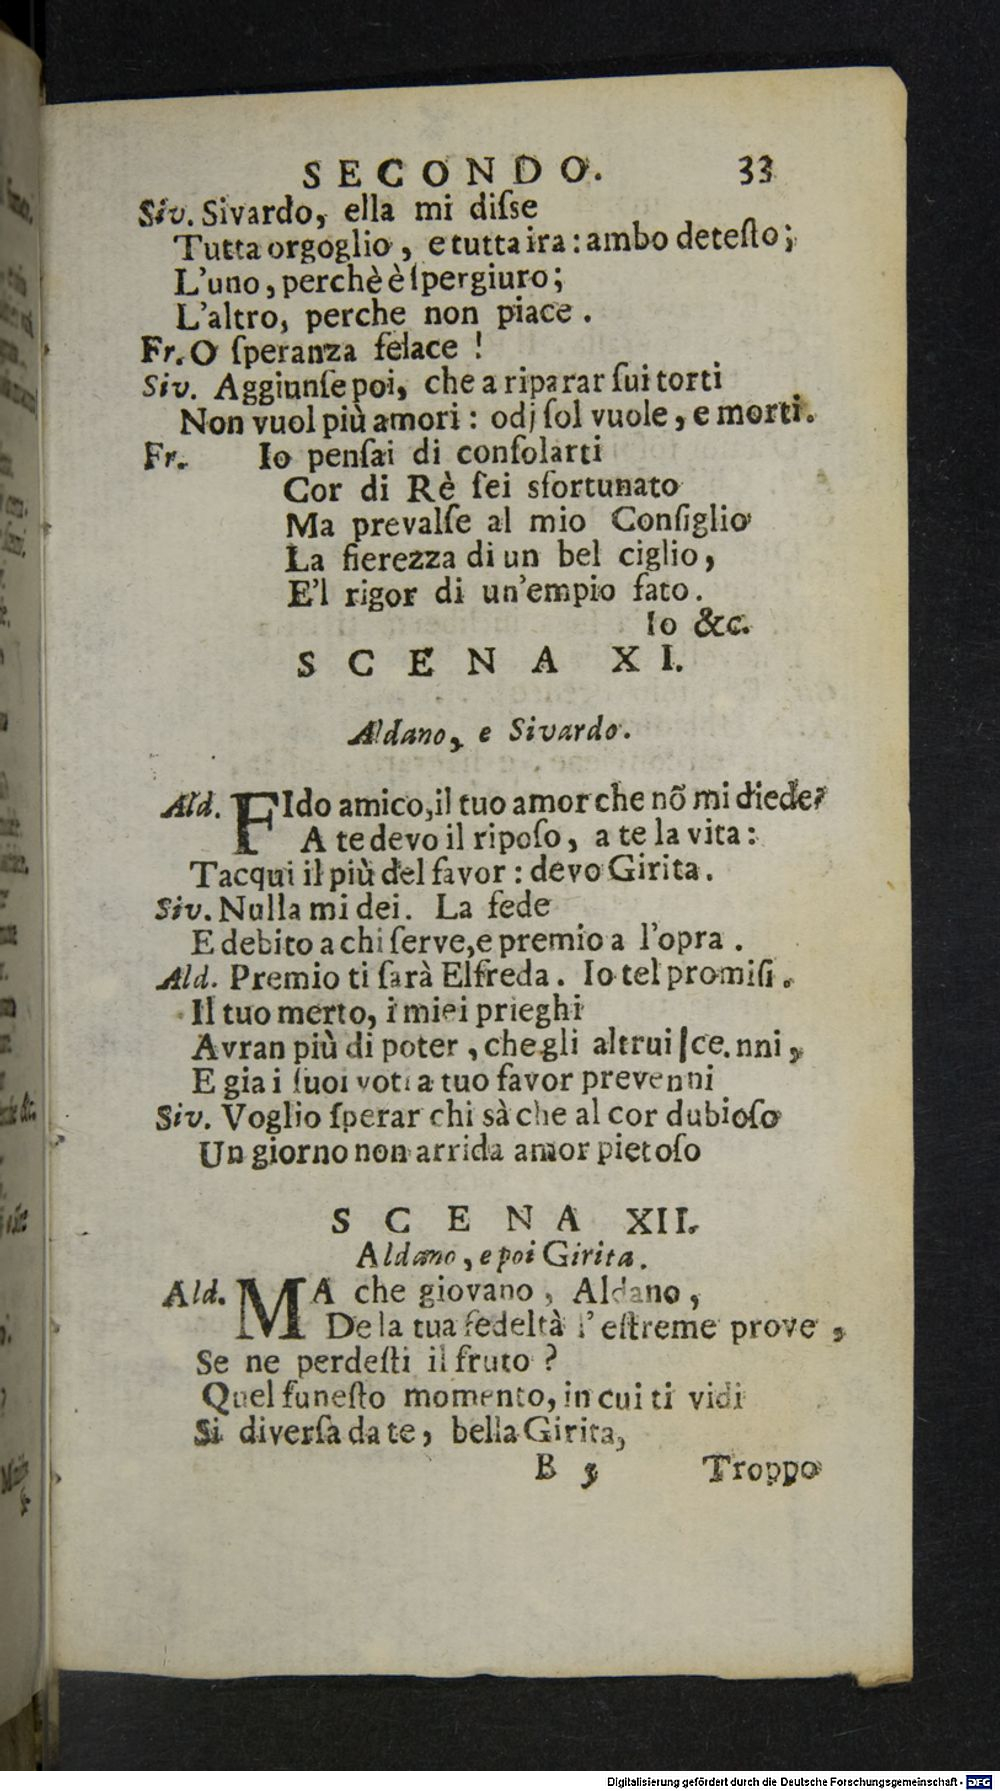 SECONDO. 33
Siv. Sivardo, ella mi diſse
Tutta orgoglio, e tutta ira: ambo deteſto;
L'uno, perchè è ſpergiuro;
L'altro, perche non piace.
Fr. O ſperanza felace!
Siv. Aggiunſe poi, che a riparar ſui torti
Non vuol più amori: odj ſol vuole, e morti.
Fr. Io penſai di conſolarti
Cor di Rè ſei sfortunato
Ma prevalſe al mio Conſiglio
La fierezza di un bel ciglio,
E'l rigor di un'empio fato.
Io &c.
SCENA XI.
Aldano, e Sivardo.
Ald. FIdo amico, il tuo amor che nõ mi diede?
A te devo il ripoſo, a te la vita:
Tacqui il più del favor: devo Girita.
Siv. Nulla mi dei. La fede
E debito a chi ſerve, e premio a l'opra.
Ald. Premio ti ſarà Elfreda. Io tel promiſi.
Il tuo merto, i miei prieghi
Avran più di poter, che gli altrui ſce.nni,
E gia i ſuoi voti a tuo favor prevenni
Siv. Voglio ſperar chi sà che al cor dubioſo
Un giorno non arrida amor pietoſo
SCENA XII.
Aldano, e poi Girita.
Ald. MA che giovano, Aldano,
De la tua fedeltà l'eſtreme prove,
Se ne perdeſti il fruto?
Quel funeſto momento, in cui ti vidi
Si diverſa da te, bella Girita,
B 3 Troppo
Digitalisierung gefördert durch die Deutsche Forschungsgemeinschaft - DFG